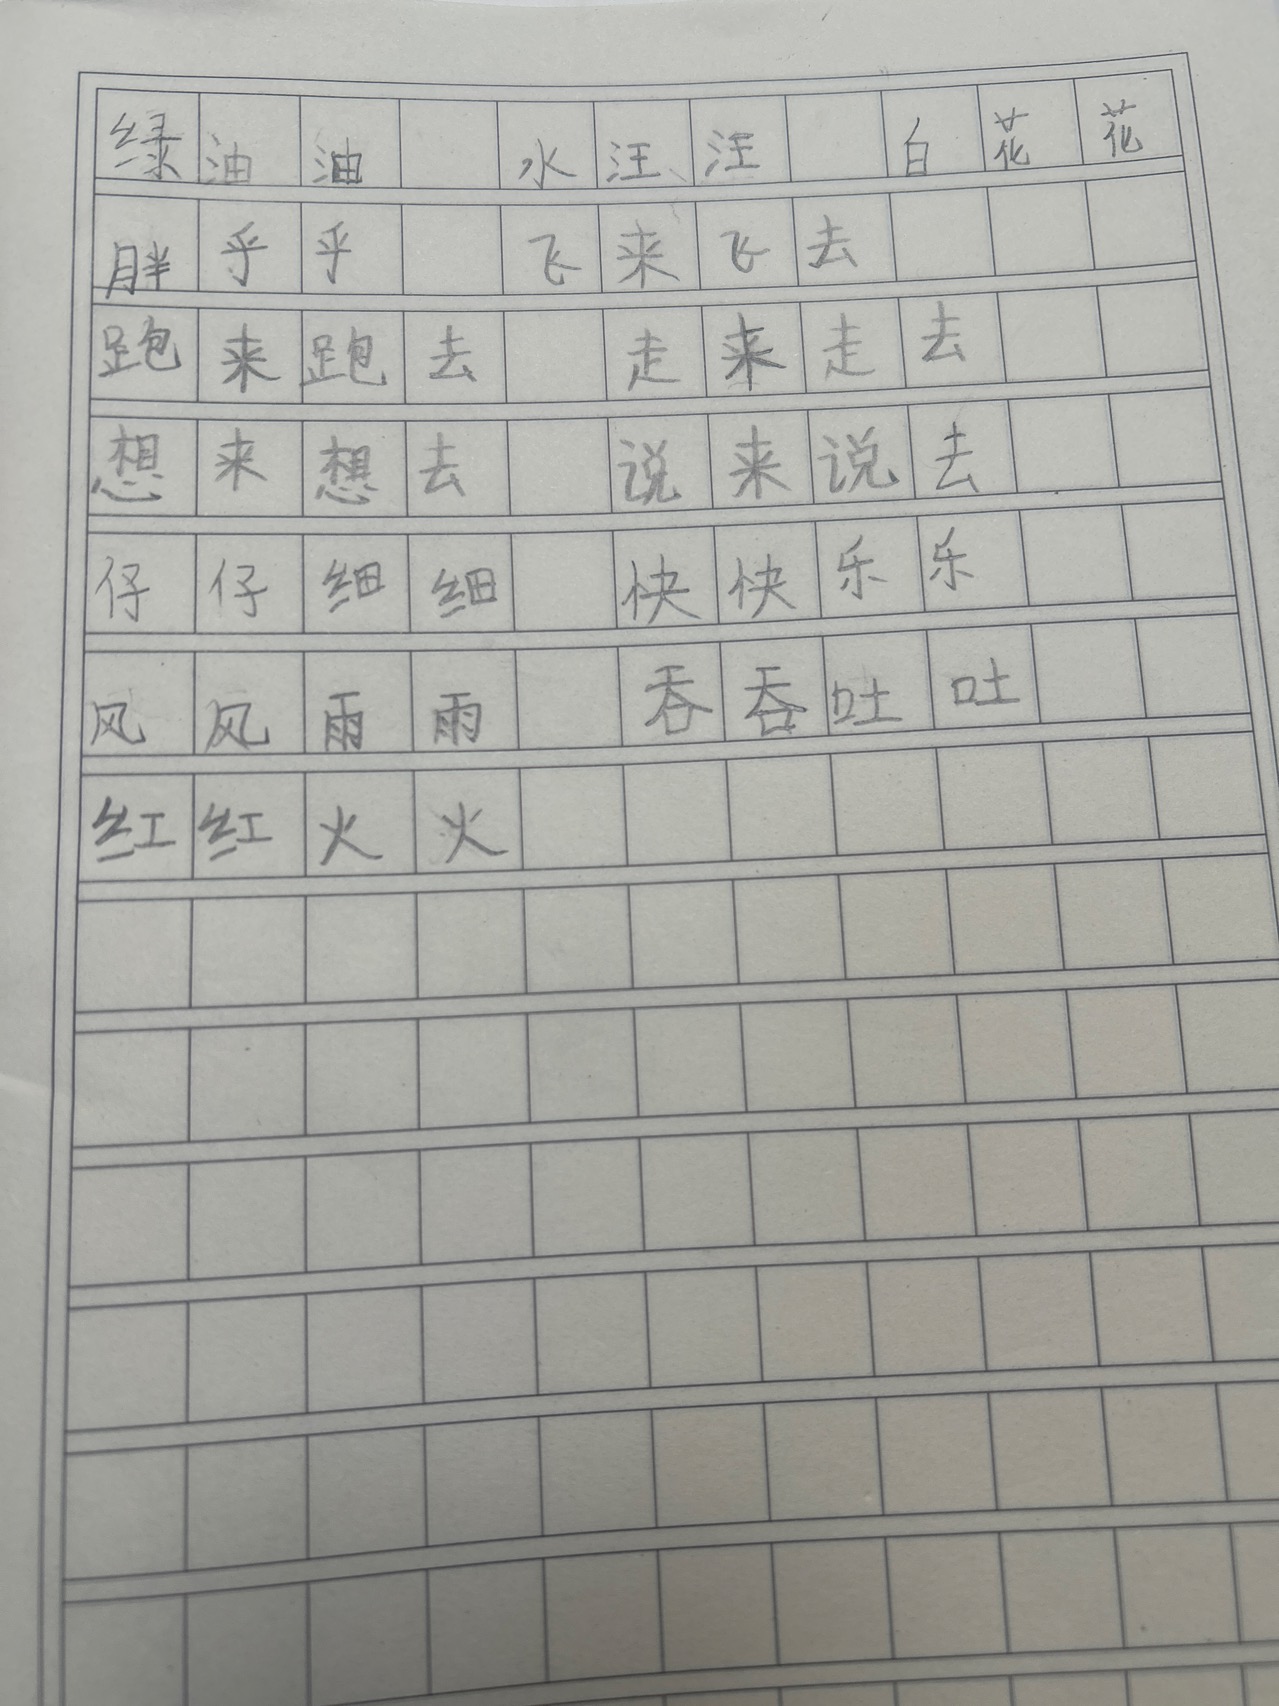 绿油油 水汪汪 白花花
胖乎乎 飞来飞去
跑来跑去 走来走去
想来想去 说来说去
仔仔细细 快快乐乐
风风雨雨 吞吞吐吐
红红火火